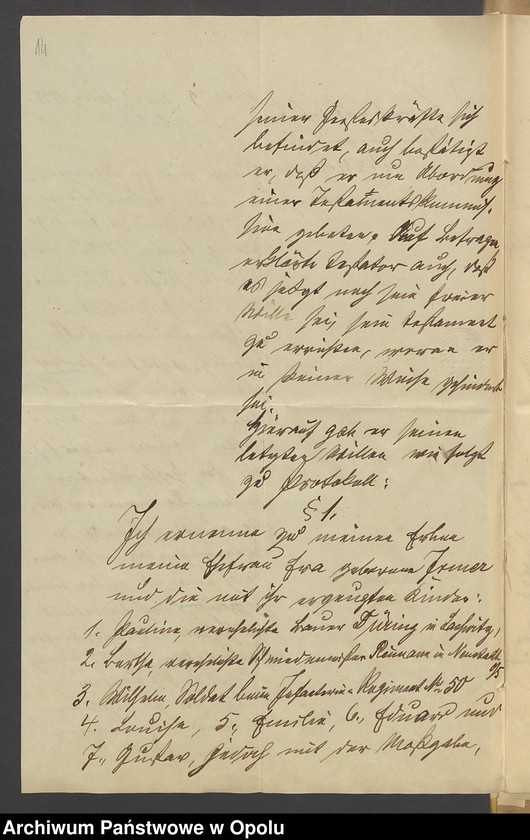 14
seiner Geisteskräfte sich
befindet, auch bestätigt
er, daß er um Abordnung
einer Testamentskommis-
sion gebeten. Auf Befragen
erklärte Testator auch, daß
es jetzt noch sein freier
Wille sei, sein Testament
zu errichten, woran er
in keiner Weise gehindert
sei.
Hierauf gab er seinen
letzten Willen wie folgt
zu Protokoll:
§ 1.
Ich ernenne zu meinen Erben
meine Ehefrau Eva geborene
und die mit ihr erzeugten Kinder:
1. Pauline, verehelichte Bauer in
2. Bertha, verehelichte Schmiedemeister in Neustadt
O/S
3. Wilhelm, Soldat beim Infanterie Regiment No 50
4. Louise, 5., Emilie, 6., Eduard und
7., Gustav, jedoch mit der Maßgabe,
Archiwum Państwowe w Opolu